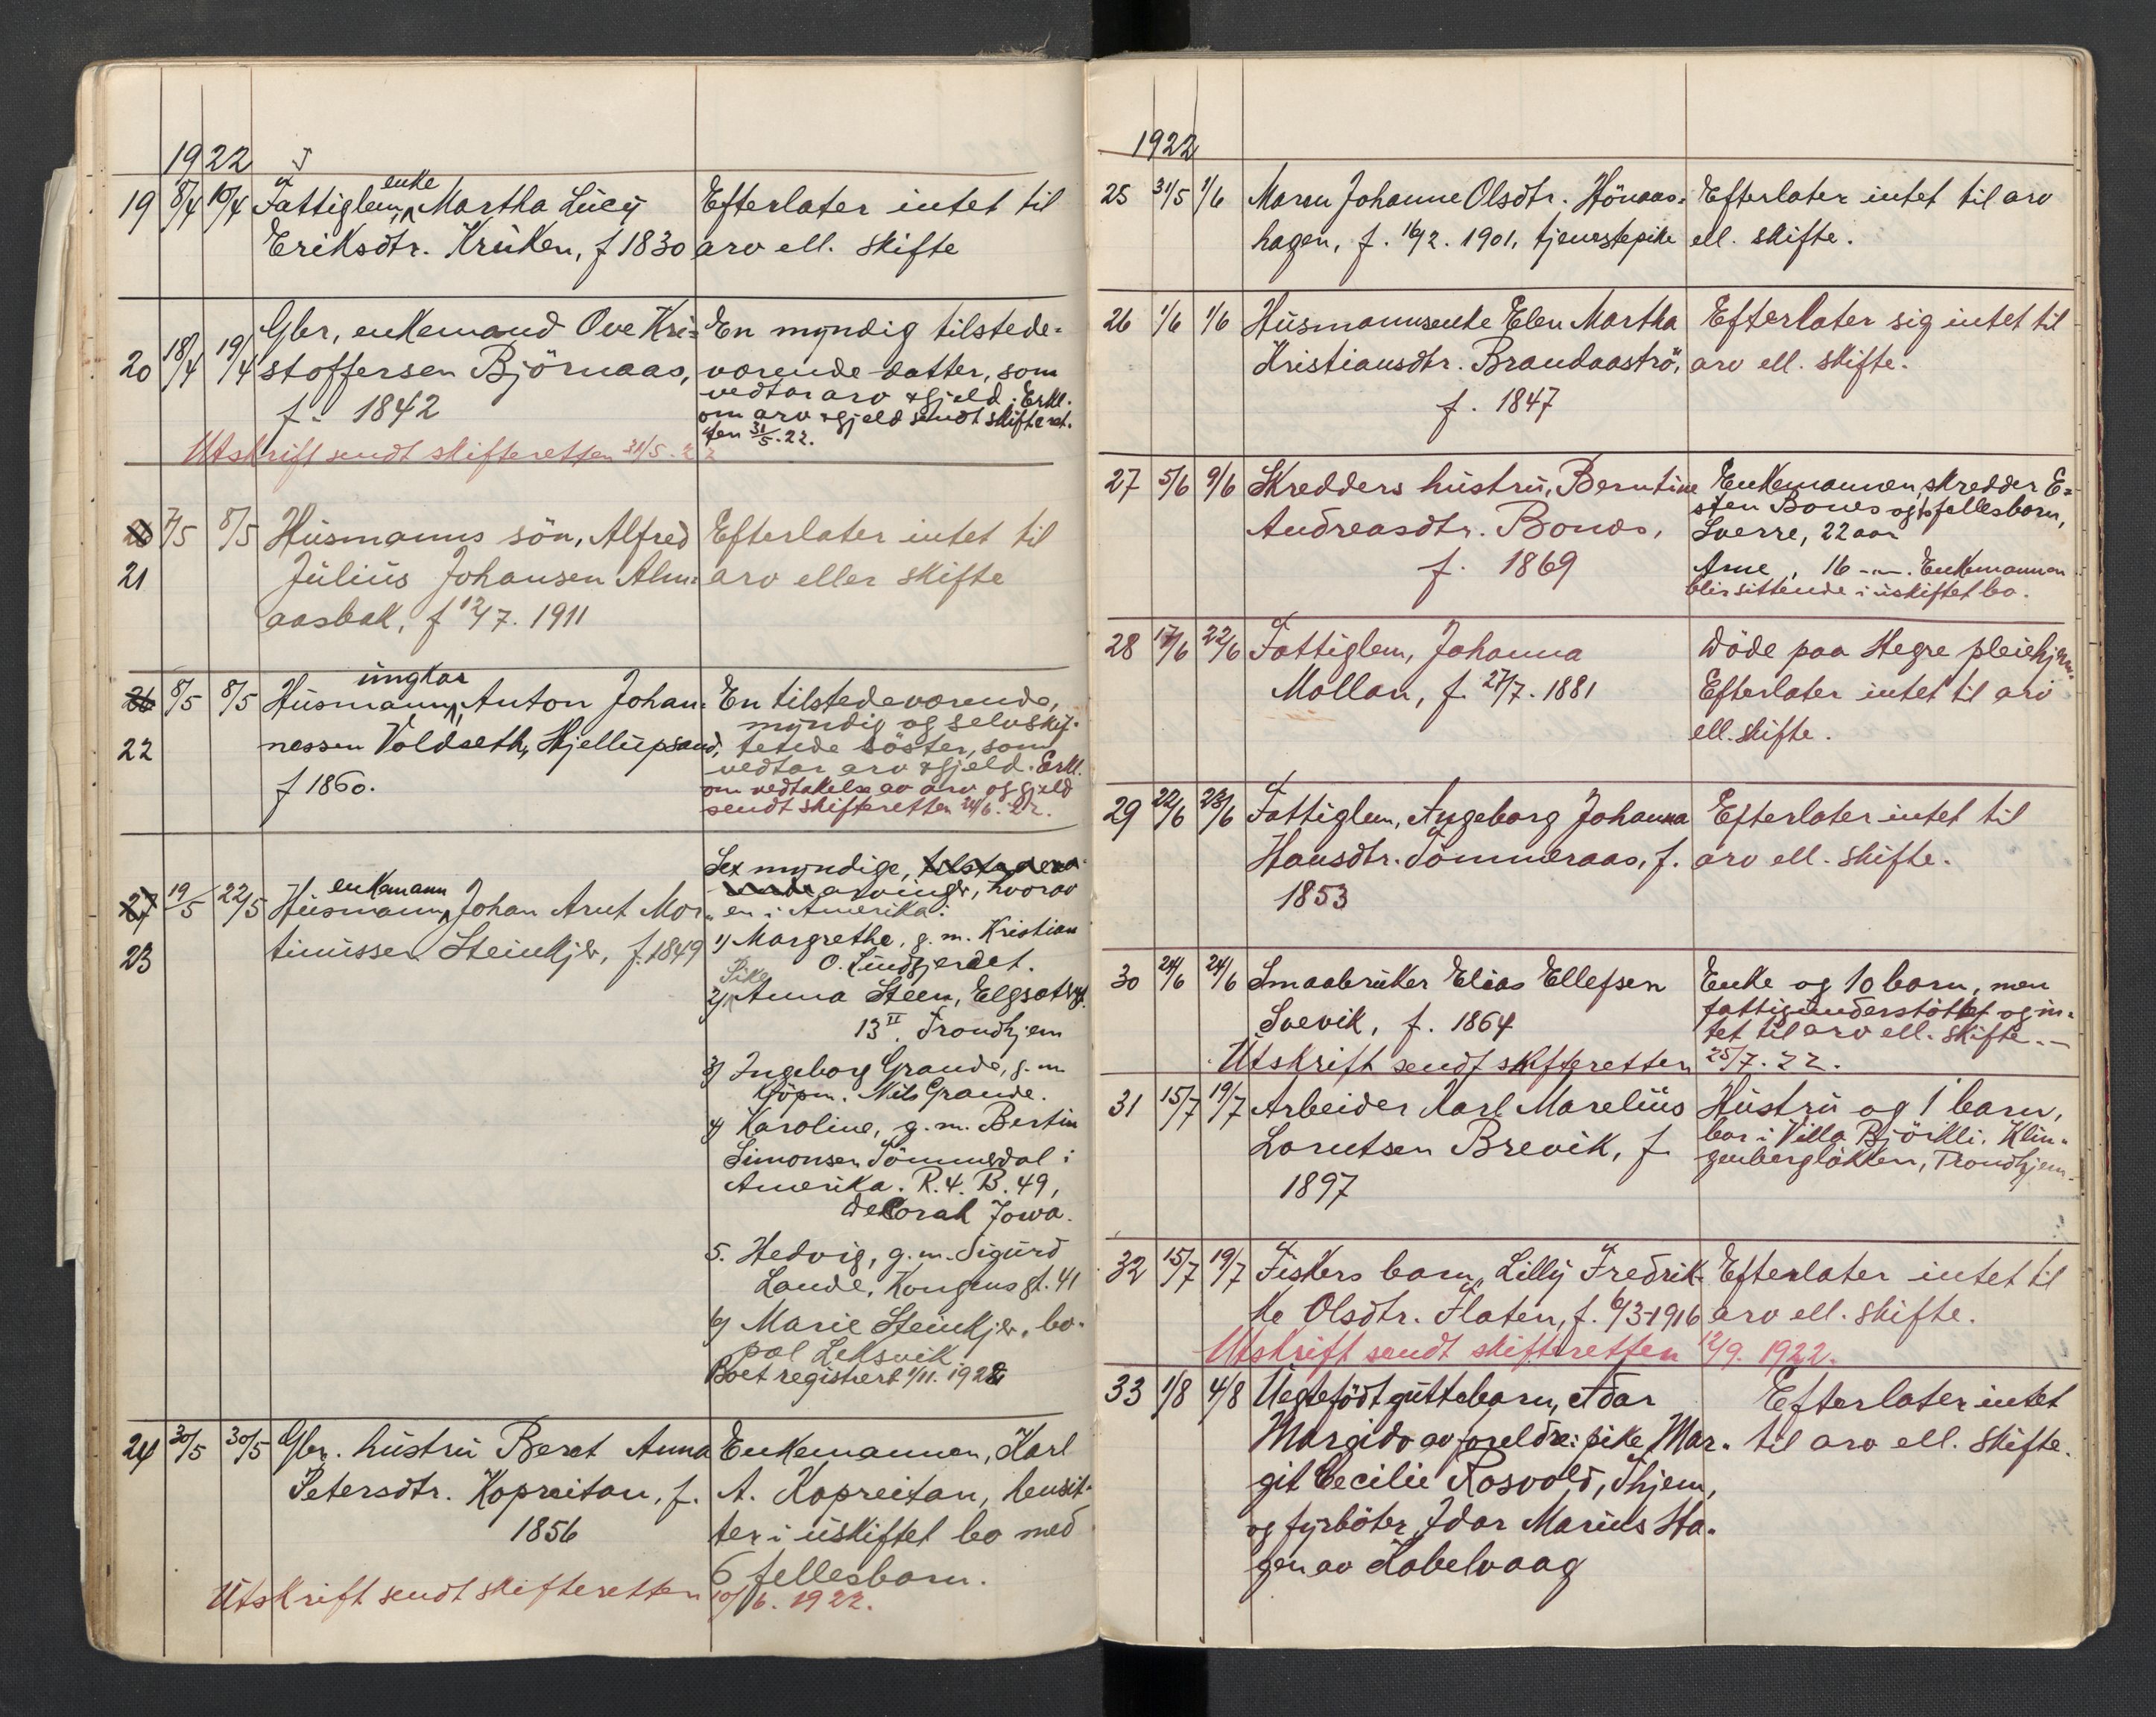 1922
enke
19 8/4 10/4 Fattiglem, Martha Lücy Efterlater intet til
Eriksdtr. Krüken, f 1830 arv ell. skifte
20 18/4 19/4 Gbr, enkemand Ove Kri= En myndig tilstede=
stoffersen Björnaas, værende datter, som
f. 1842 vedtar arv & gjeld. Erkl.
om arv & gjeld sendt skifteret.
ten 31/5.22.
Utskrift sendt skifteretten 31/5. 22
7/5 8/5 Hüsmanns sön, Alfred Efterlater intet til
21 Jülius Johansen Alm= arv eller skifte
aasbak, f 12/7. 1911
üngkar
8/5 8/5 Hüsmann, Anton Johan= En tilstedeværende,
22 nessen Voldseth, Skjellüpsand, myndig og selvskif=
f 1860. tende söster, som
vedtar arv & gjeld. Erkl.
om vedtakelse av arv og gjeld
sendt skifteretten 24/6. 22.
enkemann
27 19/5 22/5 Hüsmann, Johan Arnt Mor= Sex myndige,
arvinger, hvorav
en i Amerika:
23 tinüssen Steinkjer, f. 1849 1) Margrethe, g. m. Kristian
O. Lindgjerdet.
Pike
2) Anna Steen, Elgsætergt.
13 II. Trondhjem
3) Ingeborg Grande, g. m
Kjöpm. Nils Grande.
4) Karoline, g. m. Bertin
Simonsen Tömmerdal i
Amerika. R. 4. B. 49,
Dekorah Jowa.
5. Hedvig, g. m. Sigürd
Lande, Kongensgt. 41
6) Marie Steinkjer, bo=
pæl Leksvik
Boet registrert 1/11. 1922
24 30/5 30/5 Gbr. hüstrü Beret Anna Enkemannen, Karl
Petersdtr. Kopreitan, f. A. Kopreitan, hensit=
1856 ter i üskiftet bo med
6 fellesbarn.
Utskrift sendt skifteretten 10/6. 1922.
1922
25 31/5 1/6 Maren Johanne Olsdtr. Hönaas= Efterlater intet til arv
hagen, f. 16/2. 1901, tjenestepike ell. skifte.
26 1/6 1/6 Hüsmannsenke Elen Martha Efterlater sig intet til
Kristiansdtr. Brandaaströ, arv ell. skifte.
f. 1847
27 5/6 9/6 Skredders hüstrü, Berntine Enkemannen, skredder E=
Andreasdtr. Bones, sten Bones og to fellesbarn,
f. 1869 Sverre, 22 aar
Arne, 16 -"-. Enkemannen
blir sittende i üskiftet bo.
28 17/6 22/6 Fattiglem, Johanna Döde paa Hegre pleiehjem.
Mollan, f. 27/7. 1881 Efterlater intet til arv
ell. skifte.
29 22/6 23/6 Fattiglem, Ingeborg Johanna Efterlater intet til
Hansdtr. Tömmeraas, f. arv ell. skifte.
1853
30 24/6 24/6 Smaabrüker Elias Ellefsen Enke og 10 barn, men
Svevik, f. 1864 fattigünderstöttet og in=
tet til arv ell. skifte.-
Utskrift sendt skifteretten 25/7. 22.
31 15/7 19/7 Arbeider Karl Marelius Hüstrü og 1 barn,
Lorntsen Brevik, f. bor i Villa Björkli, Klin=
1897 genberglökken, Trondhjem
32 15/7 19/7 Fiskers barn, Lilly Fredrik= Efterlater intet til
ke Olsdtr. Flaten, f. 6/3-1916 arv ell. skifte.
Utskrift sendt skifteretten 12/9. 1922.
33 1/8 4/8 Uegtefödt güttebarn, Adar Efterlater intet
Margido av foreldre: pike Mar= til arv ell. skifte.
git Cecilie Rosvold, Thjem,
og fyrböter Idar Marius Ha=
gen av Kabelvaag